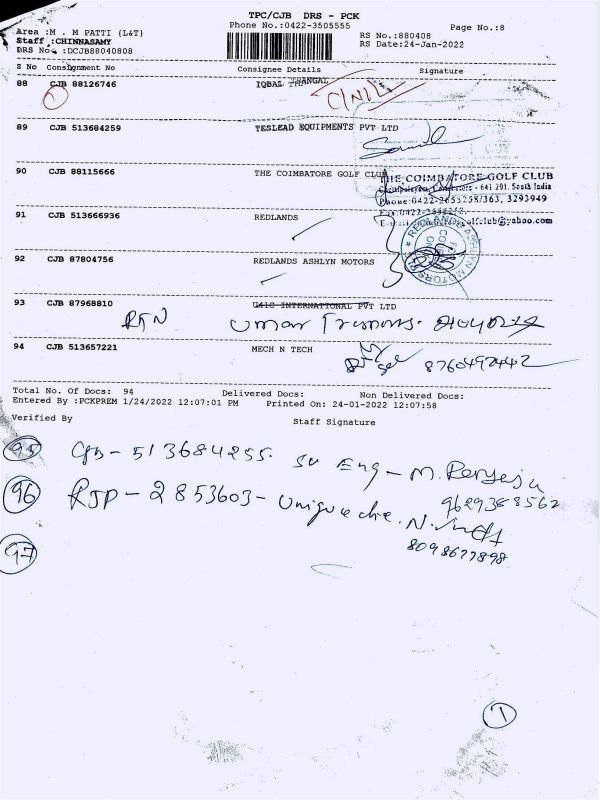 TPC/CJB DRS - PCK
Phone No.:0422-3505555
Page No.:8
Area :M . M PATTI {L&T}
Staff :CHINNASAMY
DRS No. :DCJB88040808
RS No.:880408
RS Date:24-Jan-2022
S No Consignment No Consignee Details Signature
88 CJB 88126746 IQBAL
1
C/N/L
89 CJB 513684259 TESLEAD EQUIPMENTS PVT LTD
90 CJB 88115666 THE COIMBATORE GOLF CLUB
THE COIMBATORE GOLF CLUB
Coimbatore - 641 201. South India
Phone:0422-2655258/363, 3293949
golfclub@yahoo.com
91 CJB 513666936 REDLANDS
REDLANDS ASHLYN MOTORS
92 CJB 87804756 REDLANDS ASHLYN MOTORS
93 CJB 87968810 INTERNATIONAL PVT LTD
RTN
94 CJB 513657221 MECH N TECH
8760492442
Total No. Of Docs: 94 Delivered Docs: Non Delivered Docs:
Entered By :PCKPREM 1/24/2022 12:07:01 PM Printed On: 24-01-2022 12:07:58
Verified By Staff Signature
95 CJB - 513684255. Eng - M.
9629388562
96 RJP - 2853603 - Unique
8098677898
97
1